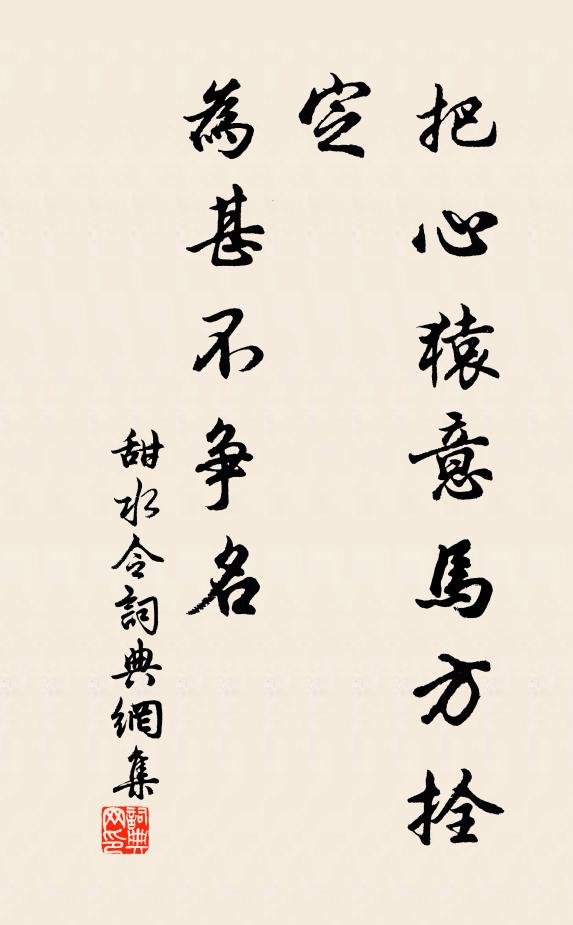 把心猿意馬方拴
定
為甚不争名
甜水令詞典網集
詞典
网印